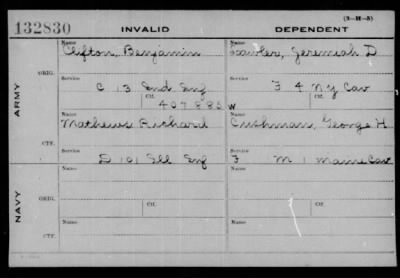 (3-H-5)
132830 INVALID DEPENDENT
ARMY
ORIG.
Name Clifton, Benjamin
Name Jeremiah D
Service C 13 Ind Inf
Service F 4 N.Y Cav
Ctf. 407883
Ctf. W
CTF.
Name Mathews Richard
Name Cushman, George H
Service D 101 Ill Inf
Service F M 1 Maine Cav
NAVY
ORIG.
Name
Name
Ctf.
Ctf.
CTF.
Name
Name